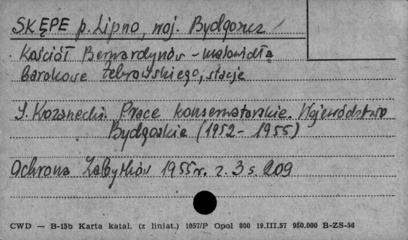 SKĘPE p. Lipno, woj. Bydgoszcz
Kościół Bernardynów - malowidła
barokowe Żebrowskiego, stacje
J. Kozanecki. Prace konserwatorskie. Województwo
Bydgoskie (1952 - 1955)
Ochrona Zabytków 1955 r. z. 3 s. 209
CWD — B-15b Karta katal. (z liniat.) 1057/P Opol 800 19.III.57 950.000 B-ZS-56